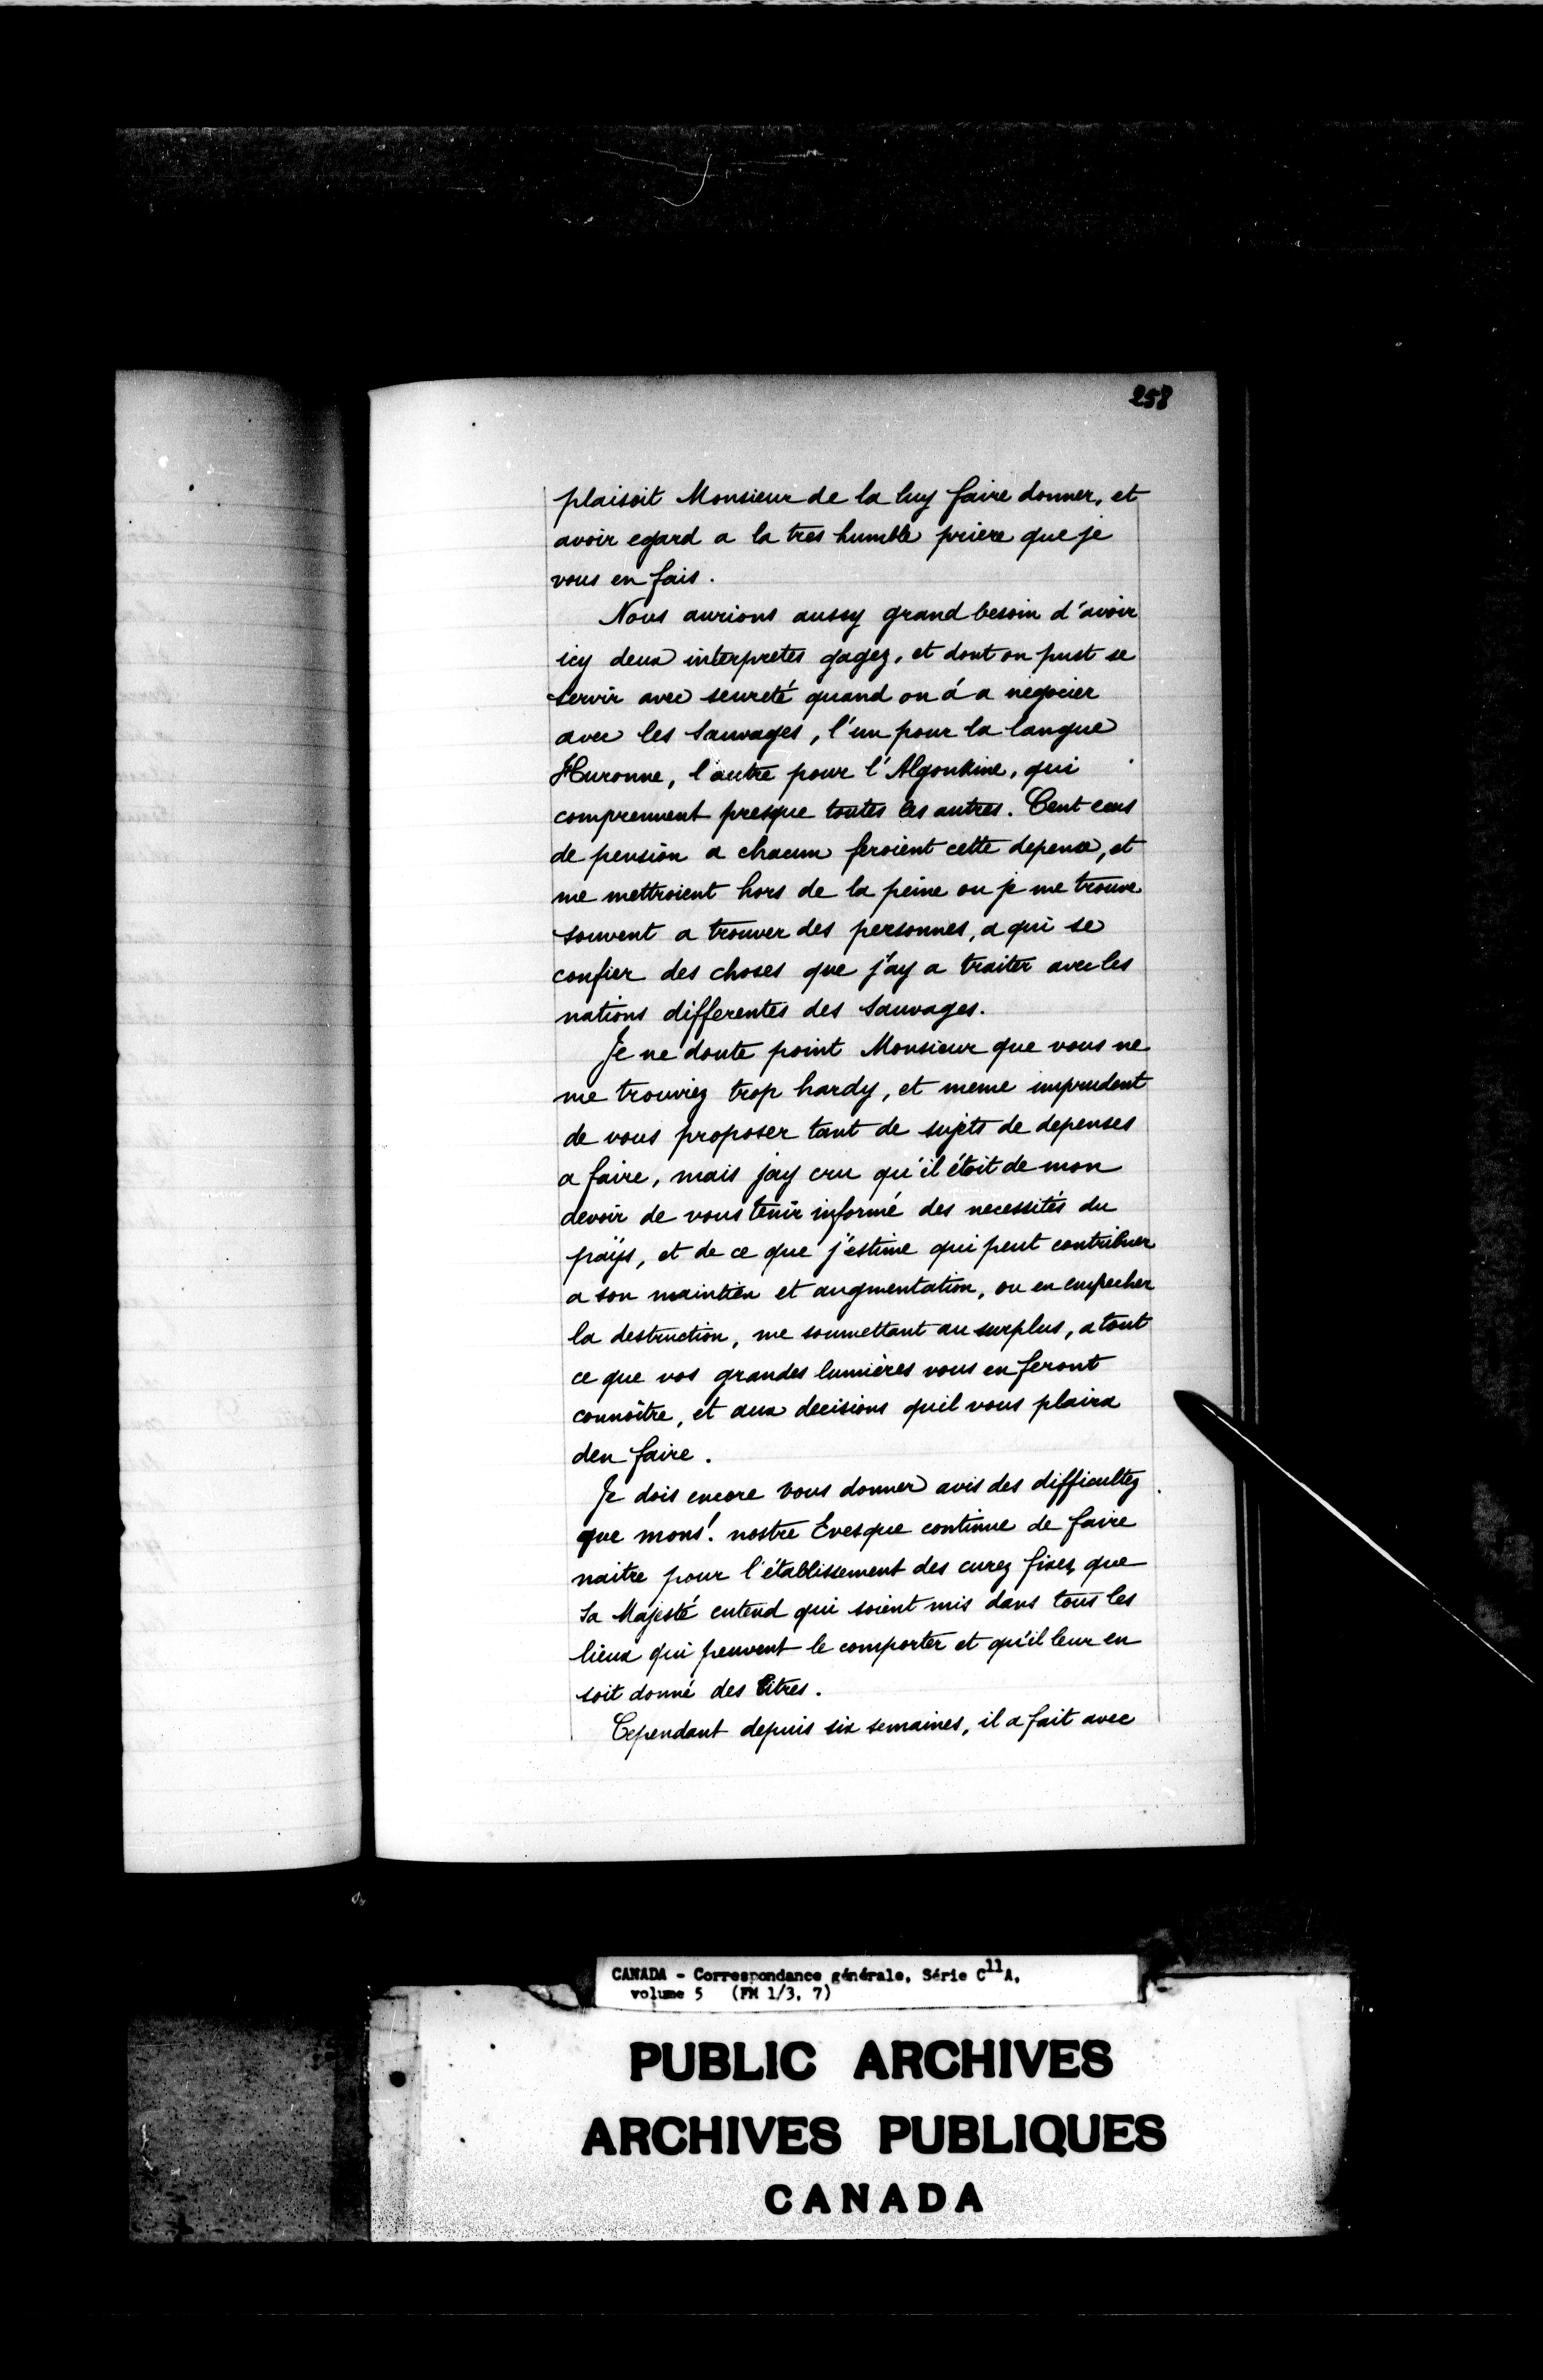 258
plaisoit Monsieur de la luy faire donner, et
avoir egard a la tres humble priere que je
vous en fais.
Nous aurions aussy grand besoin d'avoir
icy deux interpretes gagez, et dont on pust se
servir avec seureté quand on á a negocier
avec les Sauvages, l'un pour la langue
Huronne, l'autre pour l'Algonkine, qui
comprennent presque toutes les autres. Cent ecus
de pension a chacun feroient cette depense, et
me mettroient hors de la peine ou je me trouve
souvent a trouver des personnes, a qui se
confier des choses que j'ay a traiter avec les
nations differentes des Sauvages.
Je ne doute point Monsieur que vous ne
me trouviez trop hardy, et meme imprudent
de vous proposer tant de sujets de depenses
a faire, mais jay cru qu'il étoit de mon
devoir de vous tenir informé des necessités du
païs, et de ce que j'estime qui peut contribuer
a son maintien et augmentation, ou en empecher
la destruction, me soumettant au surplus, a tout
ce que vos grandes lumières vous en feront
connoître, et aux decisions quil vous plaira
den faire.
Je dois encore vous donner avis des difficultez
que mons.r nostre Evesque continue de faire
naitre pour l'établissement des curez fixes, que
Sa Majesté entend qui soient mis dans tous les
lieux qui peuvent le comporter et qu'il leur en
soit donné des titres.
Cependant depuis six semaines, il a fait avec
CANADA - Correspondance générale, Série C11A,
volume 5 (FM 1/3, 7)
PUBLIC ARCHIVES
ARCHIVES PUBLIQUES
CANADA